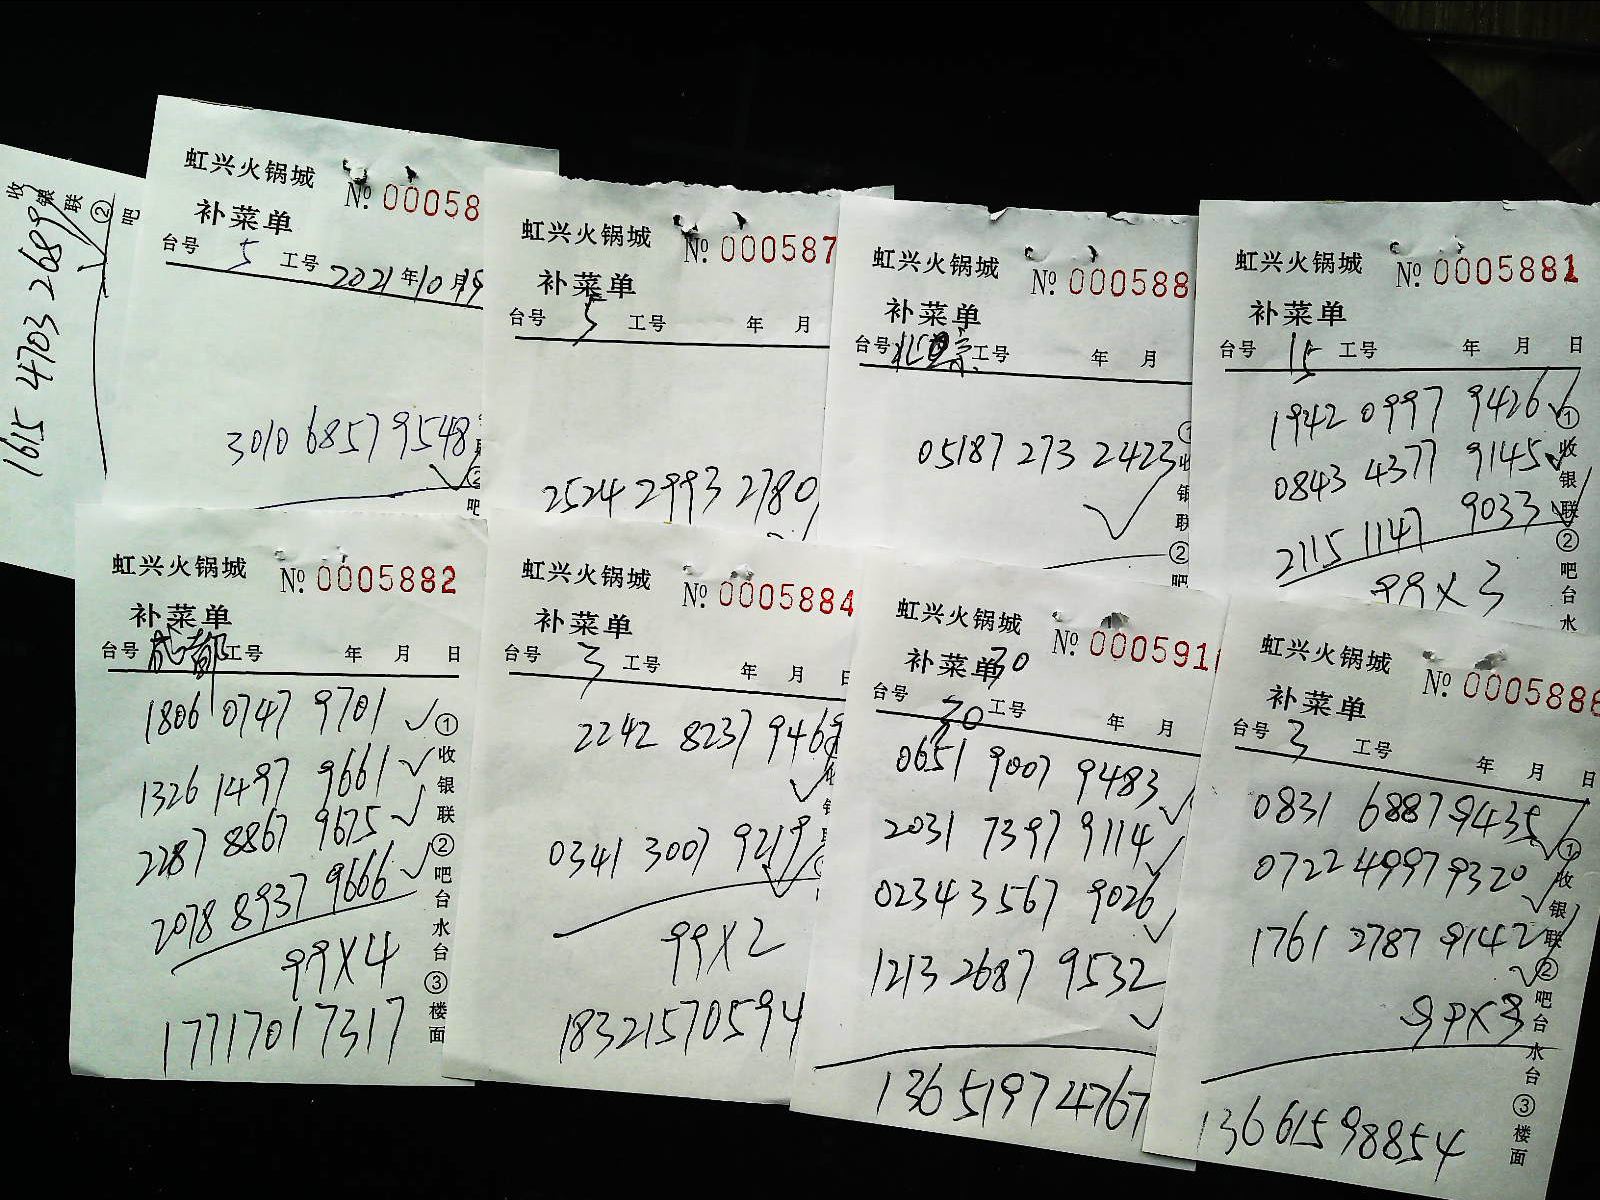 收银联②吧
1615 4703 2689
虹兴火锅城 № 00058
补菜单
台号 5 工号 2021年10月19
3010 6857 9548
②
吧
虹兴火锅城 № 000587
补菜单
台号 5 工号 年 月
2524 2993 2780
虹兴火锅城 № 000588
补菜单
台号 工号 年 月
05187 273 2423
收银联②吧
虹兴火锅城 № 0005881
补菜单
台号 15 工号 年 月 日
1942 0997 9426
0843 4377 9145
2115 1147 9033
99X3
①收银联②吧台水
虹兴火锅城 № 0005882
补菜单
台号 成都 工号 年 月 日
1806 0747 9701
1326 1497 9661
2287 8867 9675
2078 8937 9666
99X4
17717017317
①收银联②吧台水台③楼面
虹兴火锅城 № 0005884
补菜单
台号 3 工号 年 月 日
2242 8237 946
0341 3007 9219
99X2
18321570594
虹兴火锅城 № 000591
补菜单 30
台号 30 工号 年 月
0651 9007 9483
2031 7397 9114
0234 3567 9026
1213 2687 9532
13651974767
虹兴火锅城 № 0005886
补菜单
台号 3 工号 年 月 日
0831 6887 9435
0722 4997 9320
1761 2787 9142
99X3
13661598854
①收银联②吧台水台③楼面